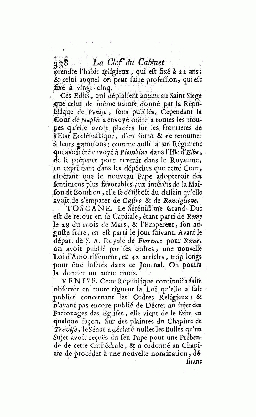 338 La Clef du Cabinet
prendre l'habit religieux, qui est fixé à 21 ans;
& celui auquel on peut faire profession, qui est
fixé à vingt-cinq.
Ces Edits, qui déplaisent autant au Saint Siége
que celui de même nature donné par la Répu-
blique de Venise, sont publiés. Cependant la
Cour de Naples a envoyé ordre à toutes les trou-
pes qu'elle avoit placées sur les frontieres de
l'Etat Ecclésiastique, d'en sortir & de retourner
à leurs garnisons; comme aussi à un Régiment
qui avoit été envoyé à Piombino dans l'Isle d'Elbe,
de se préparer pour revenir dans le Royaume,
en exprimant dans les dépêches que cette Cour,
espérant que le nouveau Pape adopteroit des
sentimens plus favorables aux intérêts de la Mai-
son de Bourbon, elle se désistoit du dessein qu'elle
avoit de s'emparer de Castro & de Ronciglione.
TOSCANE. Le Sérénissime Grand-Duc
est de retour en sa Capitale, étant parti de Rome
le 28 du mois de Mars, & l'Empereur, son au-
guste frere, en est parti le jour suivant. Avant le
départ de S. A. Royale de Florence pour Rome,
on avoit publié par ses ordres, une nouvelle
Loi d'Amortissement, en articles, trop longs
pour être insérés dans ce Journal. On pourra
la donner un autre mois.
VENISE. Cette République continue à faire
observer en toute rigueur la Loi qu'elle a fait
publier concernant les Ordres Religieux; &
n'ayant pas encore publié de Décret au sujet des
Patronages des Eglises, elle vient de le faire en
quelque façon. Sur des plaintes du Chapitre de
Trevise, le Sénat a déclaré nulles les Bulles qu'un
Sujet avoit reçues du feu Pape pour une Prében-
de de cette Cathédrale, & a ordonné au Chapi-
tre de procéder à une nouvelle nomination, dé-